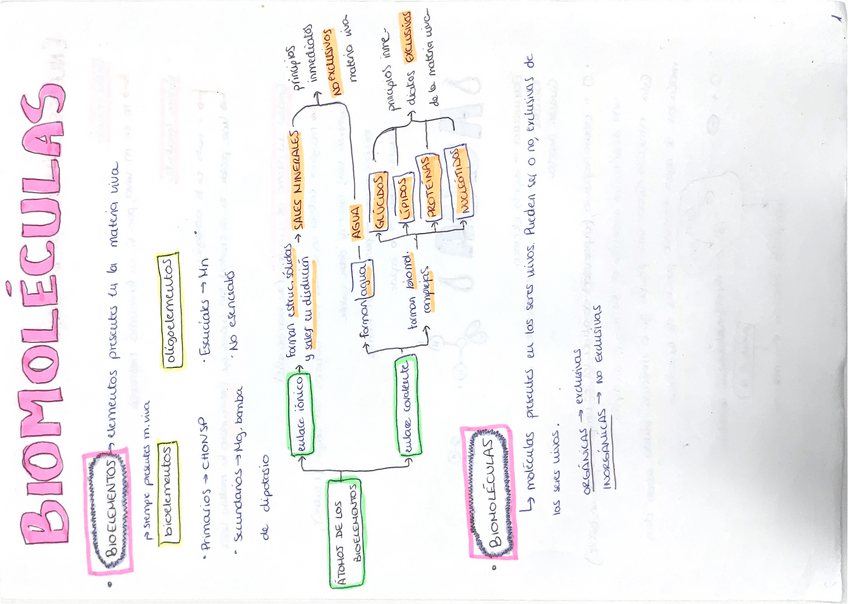 BIOMOLÉCULAS
• BIOELEMENTOS → elementos presentes en la materia viva
siempre presentes m. viva
bioelementos
· Primarios → CHONSP
· Secundarios → Mg. bomba
de dipotasio
oligoelementos
· Esenciales → Mn
· No esenciales
ÁTOMOS DE LOS
BIOELEMENTOS
enlace iónico → forman estruc. sólidas
y sales en disolución
→ SALES MINERALES
enlace covalente
forman agua — AGUA
principios
inmediatos
NO exclusivos
materia viva
forman biomol.
complejas
→ GLÚCIDOS
→ LÍPIDOS
→ PROTEÍNAS
→ NUCLEÓTIDOS
principios inme-
diatos exclusivos
de la materia viva
• BIOMOLÉCULAS
↳ moléculas presentes en los seres vivos. Pueden ser o no, exclusivas de
los seres vivos.
ORGÁNICAS → exclusivas
INORGÁNICAS → no exclusivas
1